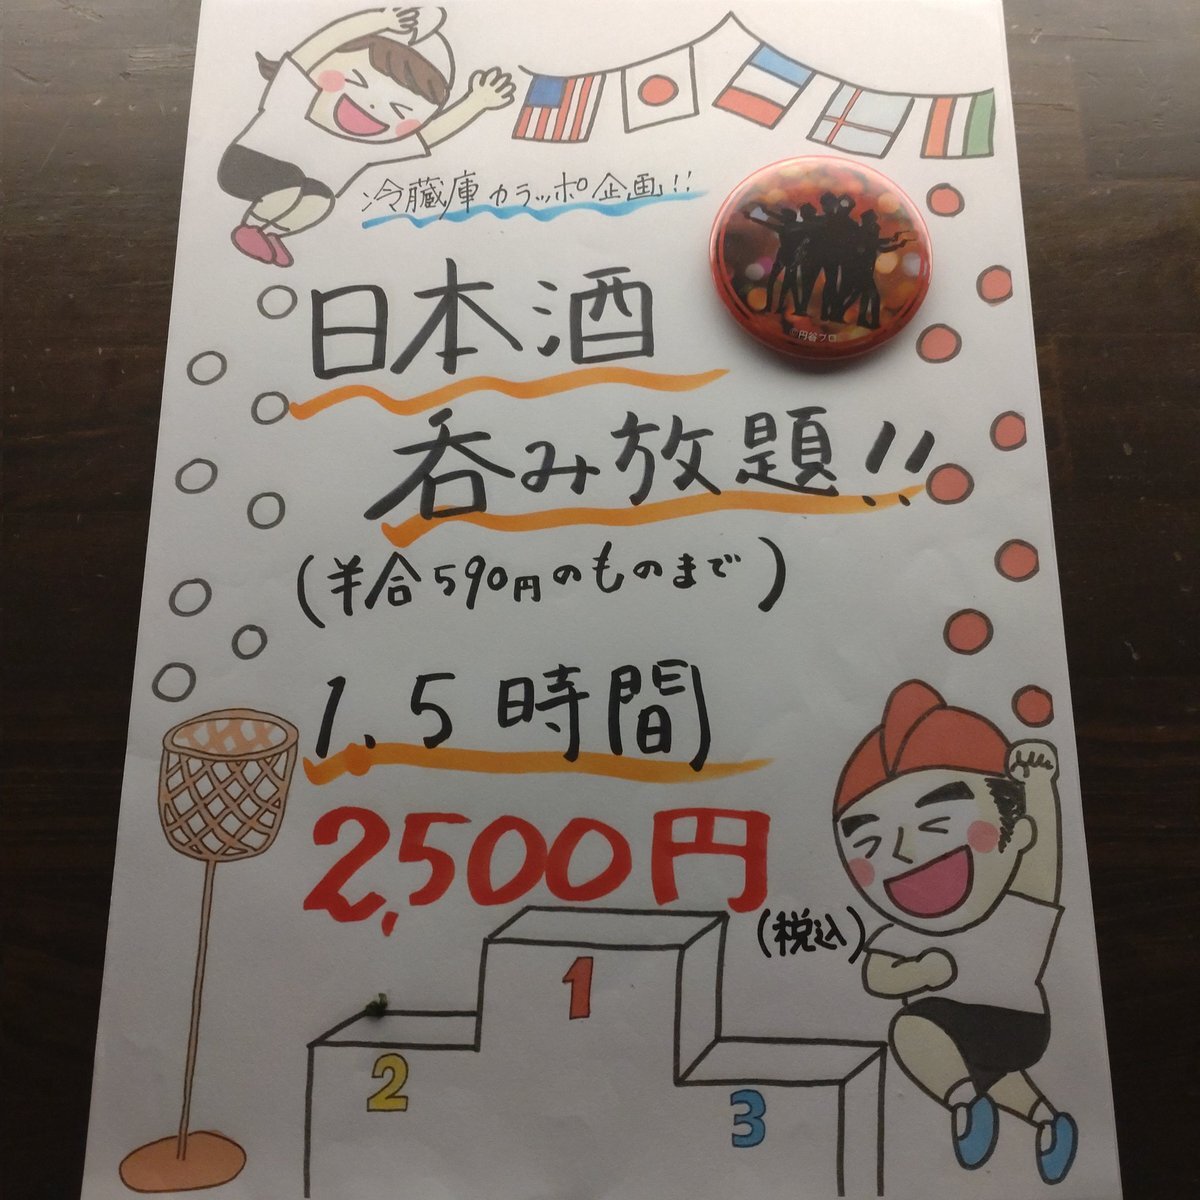 冷蔵庫カラッポ企画!!
©円谷プロ
日本酒
呑み放題!!
(半合590円のものまで)
1.5時間
2,500円
(税込)
1
2
3